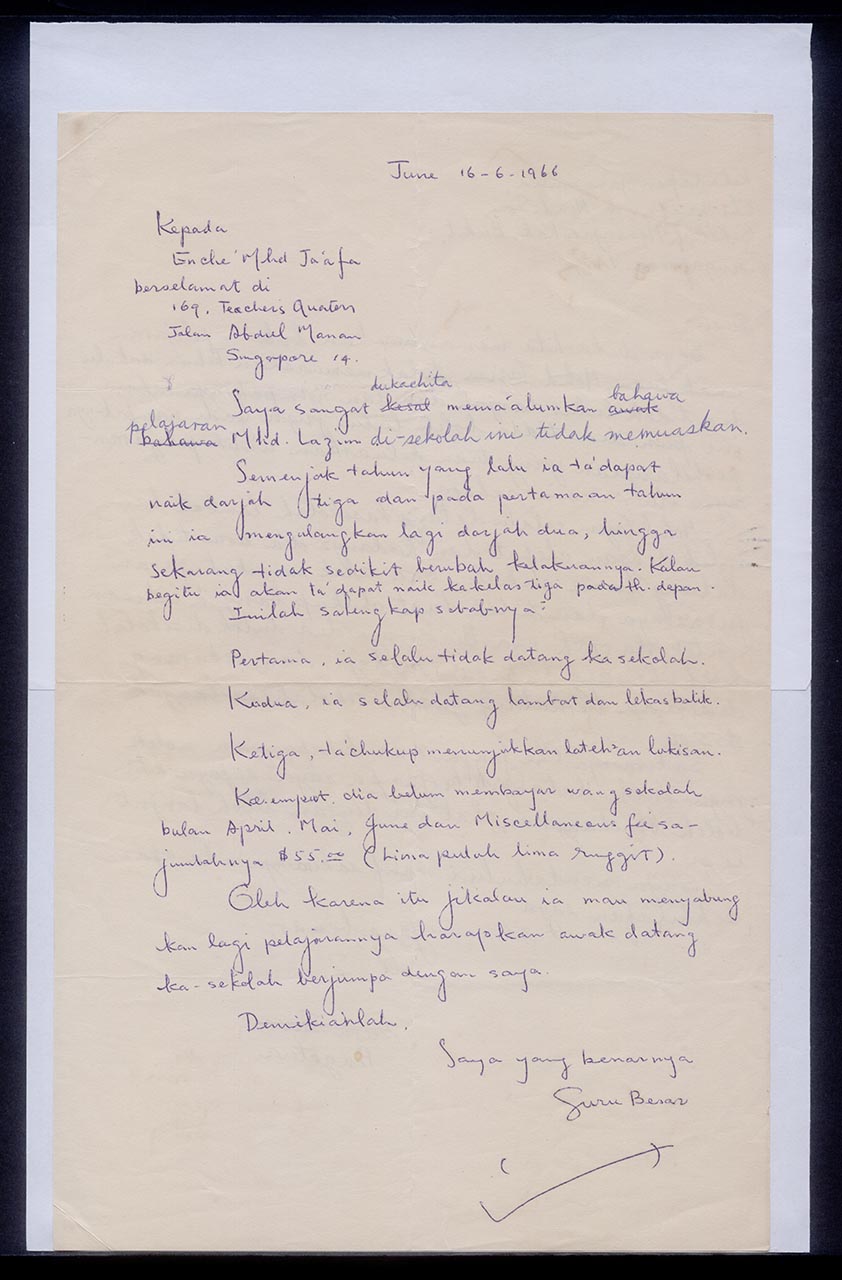 June 16-6-1966
Kepada
Enche' Mhd Ja'afa
berselamat di
169, Teachers Quaters
Jalan Abdul Manan
Singapore 14.
dukachita bahawa
Saya sangat kesal mema'alumkan awak
pelajaran
bahawa Mhd. Lazim di-sekolah ini tidak memuaskan.
Semenjak tahun yang lalu ia ta'dapat
naik darjah tiga dan pada pertamaan tahun
ini ia mengulangkan lagi darjah dua, hingga
sekarang tidak sedikit berubah kelakuannya. Kalau
begitu ia akan ta'dapat naik kakelas tiga pada th. depan.
Inilah salengkap sebabnya:
Pertama, ia selalu tidak datang ka sekolah.
Kadua, ia selalu datang lambat dan lekas balik.
Ketiga, ta'chukup menunjukkan lateh'an lukisan.
Ka-empat, dia belum membayar wang sekolah
bulan April, Mai, June dan Miscellaneous fee sa-
jumlahnya $55.00 (Lima puluh lima ringgit).
Oleh karena itu jikalau ia mau menyabung
kan lagi pelajarannya harapkan awak datang
ka-sekolah berjumpa dengan saya.
Demikianlah,
Saya yang benarnya
Guru Besar
( )